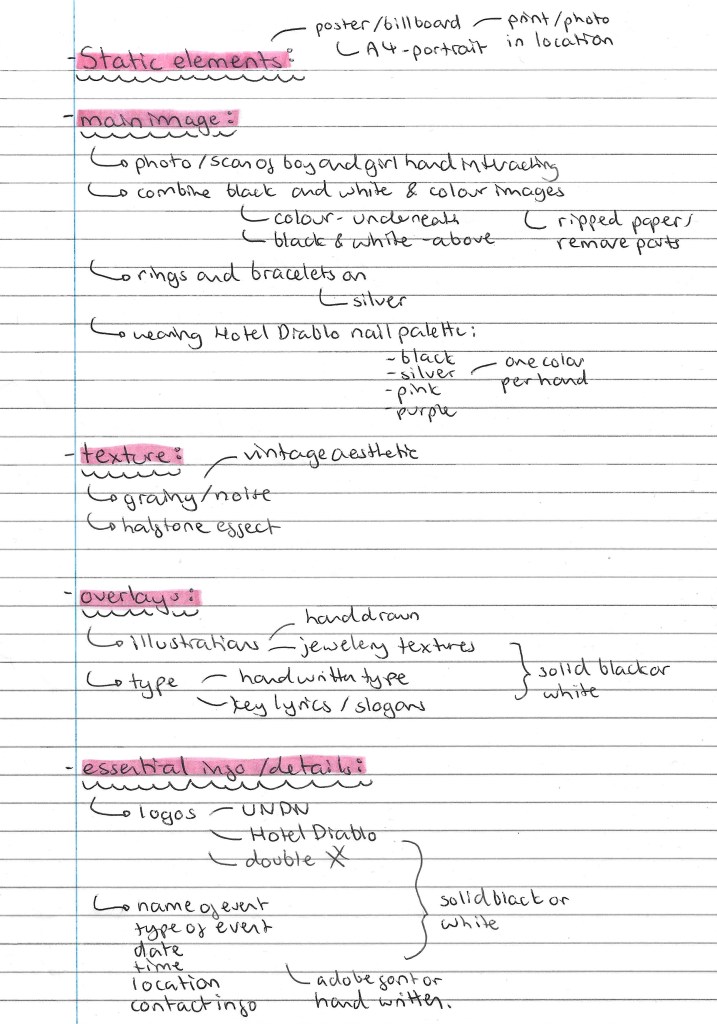 poster/billboard - print/photo
- Static elements: A4-portrait in location
- main image:
photo/scan of boy and girl hand interacting
combine black and white & colour images
colour - underneath ripped papers/
black & white - above remove parts
rings and bracelets on
silver
wearing Hotel Diablo nail palette:
- black
- silver one color
- pink per hand
- purple
- texture: vintage aesthetic
grainy/noise
halftone effect
- overlays:
hand drawn
illustrations jewelery textures
type handwritten type solid black or
key lyrics / slogans white
- essential info /details:
logos UNDN
Hotel Diablo
double X
name of event solid black or
type of event white
date
time
location adobe font or
contact info hand written.